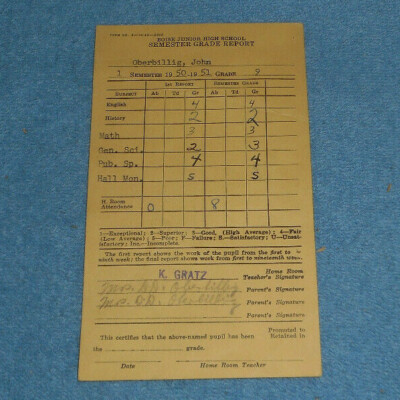 BOISE JUNIOR HIGH SCHOOL
SEMESTER GRADE REPORT
Oberbillig, John
1 SEMESTER 19 50 - 19 51 GRADE 9
1ST REPORT SEMESTER GRADE
SUBJECT Ab Td Gr Ab Td Gr
English 4 4
History 2 2
Math 3 3
Gen. Sci. 2 3
Pub. Sp. 4 4
Hall Mon. S S
H. Room
Attendance 0 8
1—Exceptional; 2—Superior; 3—Good, (High Average); 4—Fair
(or Average); 5—Poor; F—Failure; S—Satisfactory; U—Unsat-
isfactory; Inc.—Incomplete.
The first report shows the work of the pupil from the first to
ninth week; the final report shows work from first to nineteenth week.
K. GRATZ Home Room
Teacher's Signature
Mrs. Oberbillig Parent's Signature
Mrs. Oberbillig Parent's Signature
Parent's Signature
This certifies that the above-named pupil has been Promoted to
Retained in
the grade.
Date Home Room Teacher